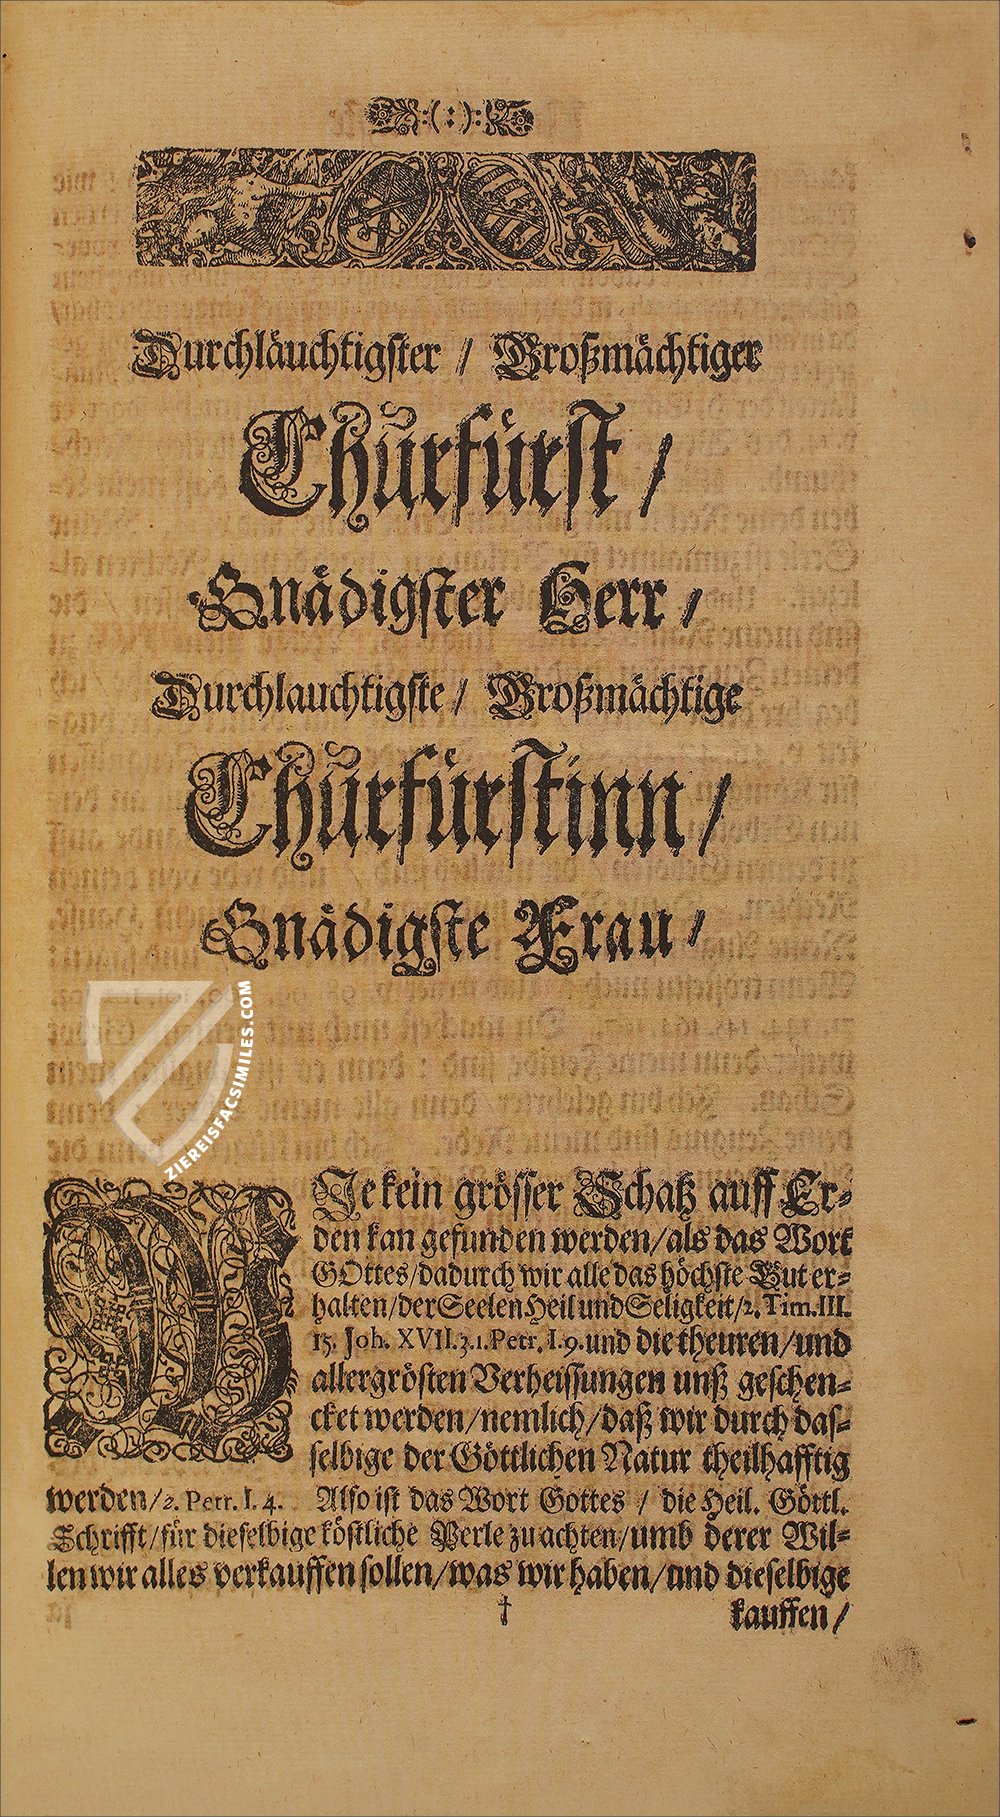 Durchläuchtigster / Großmächtiger
Churfürst /
Gnädigster Herr /
Durchlauchtigste / Großmächtige
Churfürstinn /
Gnädigste Frau /
ZIEREISFACSIMILES.COM
WJe kein grösser Schatz auff Er-
den kan gefunden werden / als das Wort
GOttes / dadurch wir alle das höchste Gut er-
halten / der Seelen Heil und Seligkeit / 2. Tim. III.
15. Joh. XVII. 3. 1. Petr. I. 9. und die theuren / und
allergrösten Verheissungen unß geschen-
cket werden / nemlich / daß wir durch das-
selbige der Göttlichen Natur theilhafftig
werden / 2. Petr. I. 4. Also ist das Wort Gottes / die Heil. Göttl.
Schrifft / für dieselbige köstliche Perle zu achten / umb derer Wil-
len wir alles verkauffen sollen / was wir haben / und dieselbige
† kauffen /